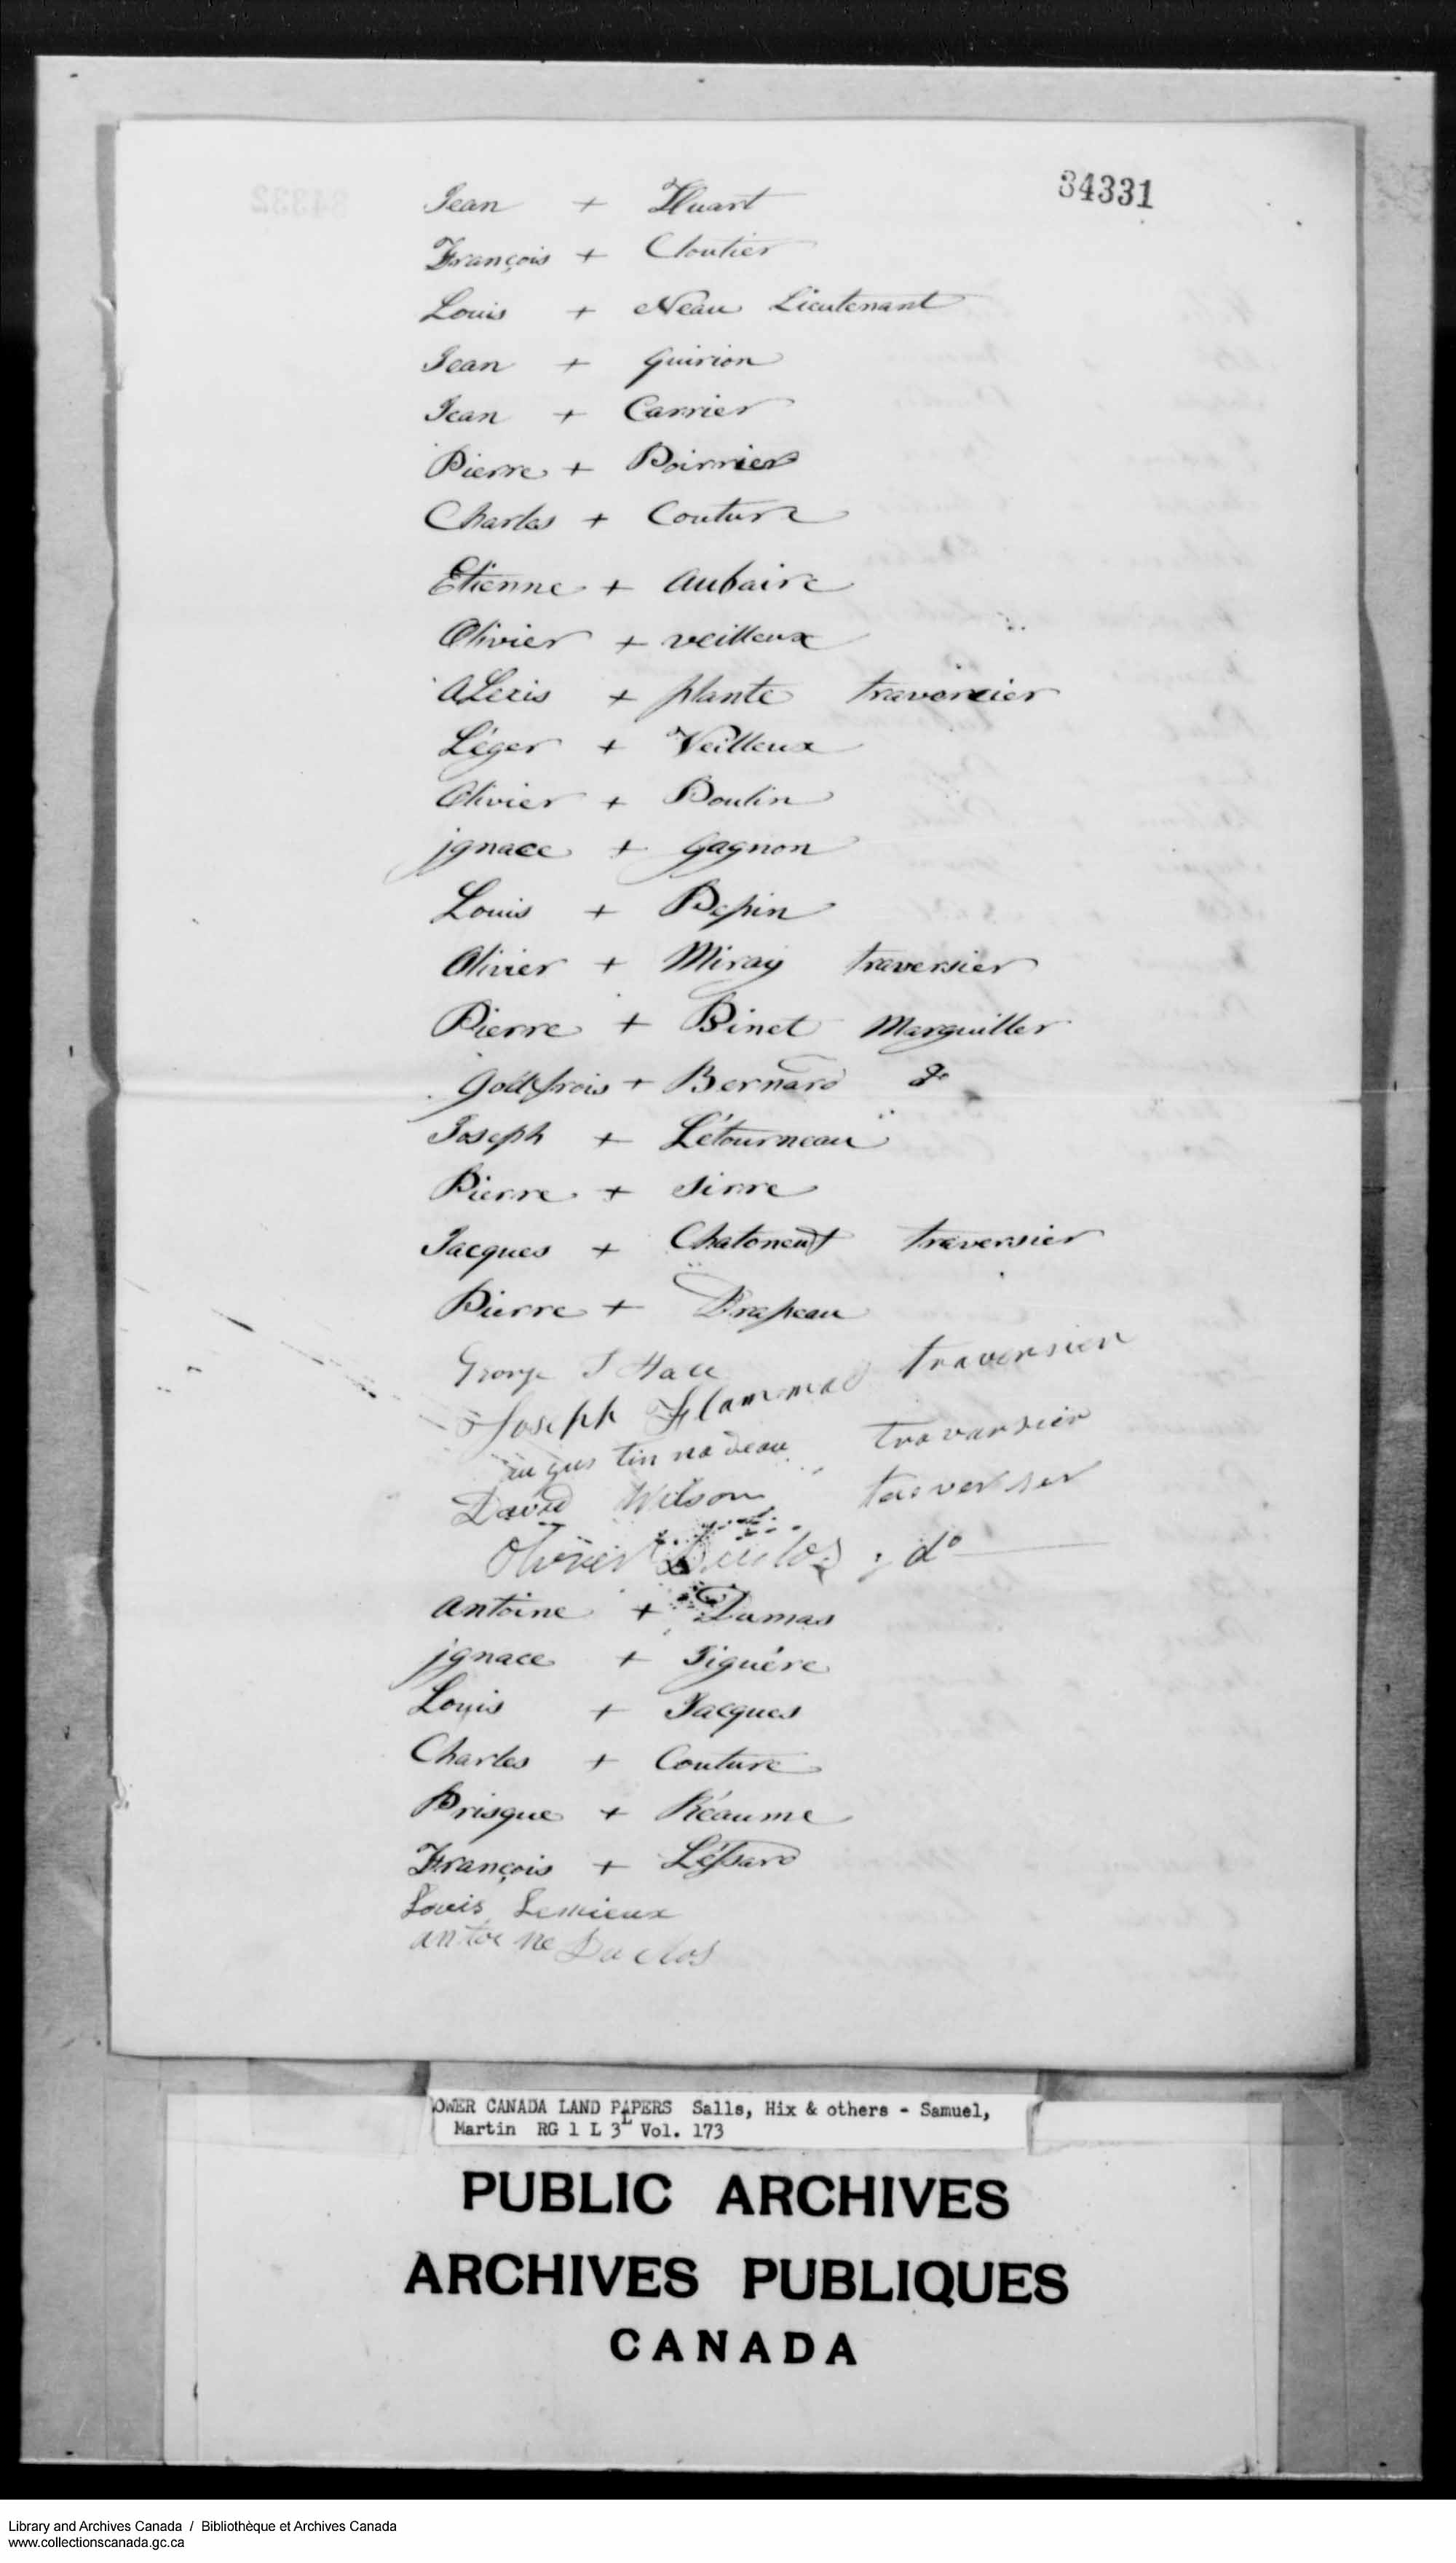 84331
Jean + Huart
François + Cloutier
Louis + Neau Lieutenant
Jean + Guirion
Jean + Carrier
Pierre + Poirrier
Charles + Couture
Etienne + Aubaire
Olivier + veilleux
ALexis + plante traversier
Léger + Veilleux
Olivier + Poulin
jgnace + Gagnon
Louis + Pepin
Olivier + Miray traversier
Pierre + Binet Marguiller
Godfrois + Bernard do
Joseph + Létourneau
Pierre + Sirre
Jacques + Chatoneuf traversier
Pierre + Drapeau
George Hall
Joseph Flammand traversier
augustin nadeau travarsier
David Wilson taeverser
Olivier Duclos do
Antoine + Dumas
jgnace + Jiguére
Louis + Jacques
Charles + Couture
Prisque + Réaume
François + Léssard
Louis Lemieux
antoine Duclos
OWER CANADA LAND PAPERS Salls, Hix & others - Samuel,
Martin RG 1 L 3L Vol. 173
PUBLIC ARCHIVES
ARCHIVES PUBLIQUES
CANADA
Library and Archives Canada / Bibliothèque et Archives Canada
www.collectionscanada.gc.ca